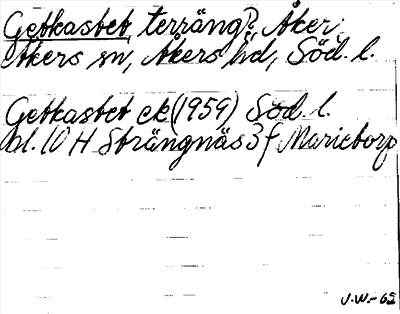 Getkastet terräng?, Åker
Åkers sn, Åkers hd, Söd. l.
Getkastet ek (1959) Söd. l.
bl. 10 H Strängnäs 3 f Marietorp
J.W.-62